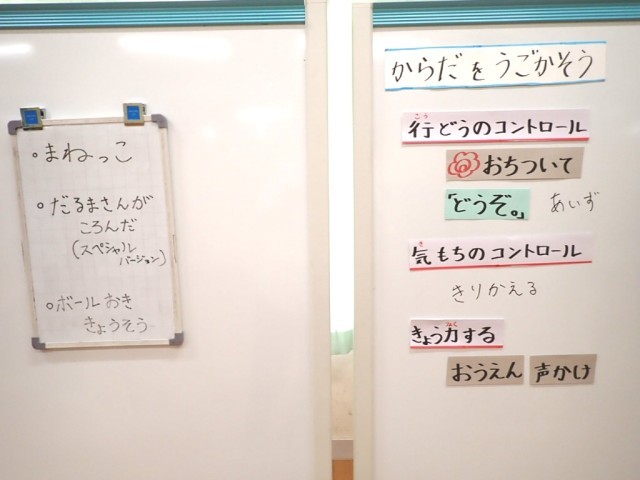 ・まねっこ
・だるまさんが
ころんだ
(スペシャル
バージョン)
・ボールおき
きょうそう
からだをうごかそう
こう
行どうのコントロール
おちついて
「どうぞ。」 あいず
き
気もちのコントロール
きりかえる
りょく
きょう力する
おうえん 声かけ